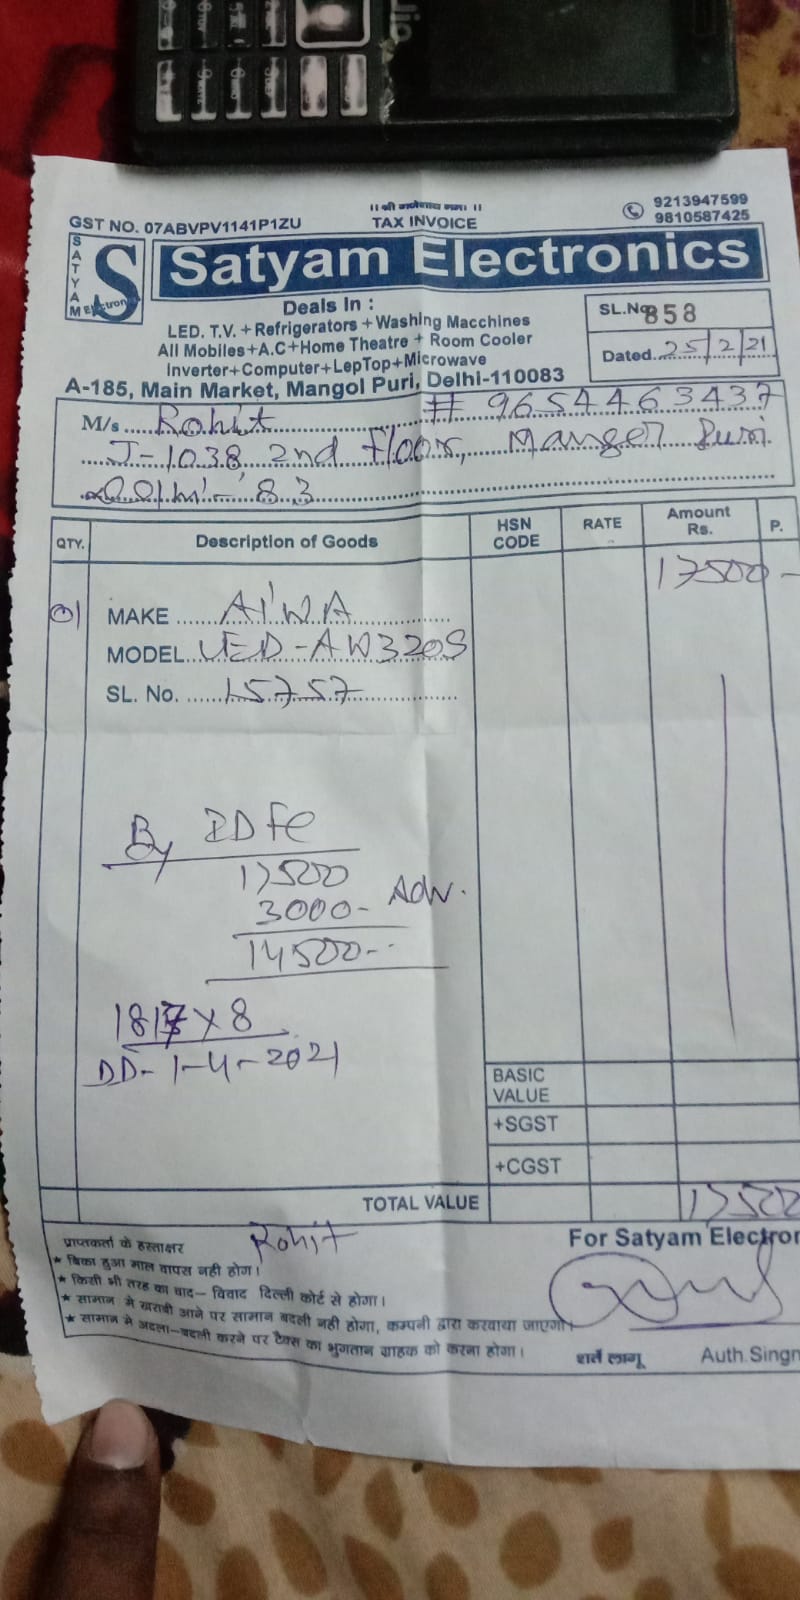 ।। श्री गणेशाय नमः ।।
GST NO. 07ABVPV1141P1ZU
TAX INVOICE
9213947599
9810587425
SATYAM
S
Electronics
Satyam Electronics
Deals In :
LED. T.V. + Refrigerators + Washing Macchines
All Mobiles+A.C+Home Theatre + Room Cooler
Inverter+Computer+LepTop+Microwave
A-185, Main Market, Mangol Puri, Delhi-110083
SL.No. 858
Dated 25/2/21
M/s Rohit # 9654463437
J-1038 2nd Floor, Mangol Puri
Delhi-'83
QTY. Description of Goods HSN CODE RATE Amount Rs. P.
17500-
01 MAKE AIWA
MODEL LED-AW320S
SL. No. 15757
By IDFC
17500
3000- Adv.
14500-
181 x 8
DD- 1-4-2021
BASIC VALUE
+SGST
+CGST
TOTAL VALUE 17500
प्राप्तकर्ता के हस्ताक्षर Rohit
For Satyam Electron
★ बिका हुआ माल वापस नही होगा।
★ किसी भी तरह का वाद– विवाद दिल्ली कोर्ट से होगा।
★ सामान मे खराबी आने पर सामान बदली नही होगा, कम्पनी द्वारा करवाया जाएगा।
★ सामान मे अदला–बदली करने पर टैक्स का भुगतान ग्राहक को करना होगा।
शर्ते लागू
Auth.Singn